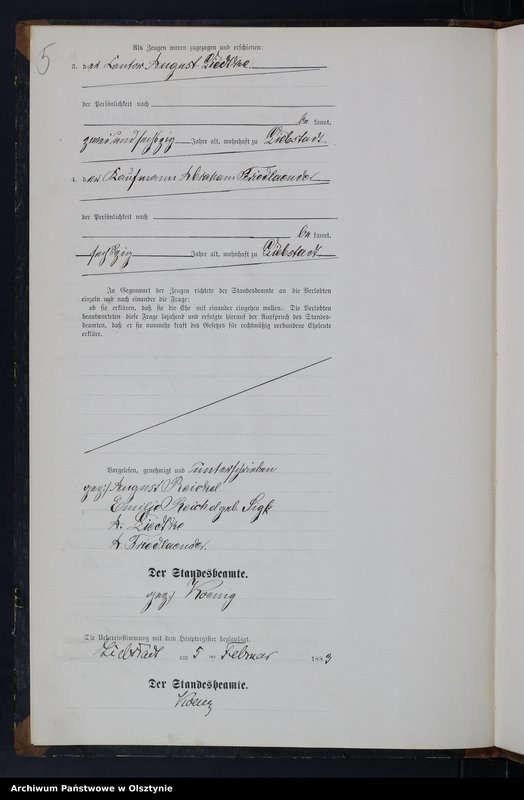 5
Als Zeugen waren zugezogen und erschienen:
3. der Kantor August Liedtke
der Persönlichkeit nach
be kannt,
zweiundsechzig Jahre alt, wohnhaft zu Liebstadt.
4. der Kaufmann Abraham Friedlaender
der Persönlichkeit nach
be kannt,
sechzig Jahre alt, wohnhaft zu Liebstadt
In Gegenwart der Zeugen richtete der Standesbeamte an die Verlobten
einzeln und nach einander die Frage:
ob sie erklären, daß sie die Ehe mit einander eingehen wollen. Die Verlobten
beantworteten diese Frage bejahend und erfolgte hierauf der Ausspruch des Standes-
beamten, daß er sie nunmehr kraft des Gesetzes für rechtmäßig verbundene Eheleute
erkläre.
Vorgelesen, genehmigt und unterschrieben
gez. August Reichel
Emilie Reichel geb.
A. Liedtke
A Friedlaender.
Der Standesbeamte.
gez. Koenig
Die Uebereinstimmung mit dem Hauptregister beglaubigt.
Liebstadt am 5 ten Februar 1883
Der Standesbeamte.
Koenig
Archiwum Państwowe w Olsztynie